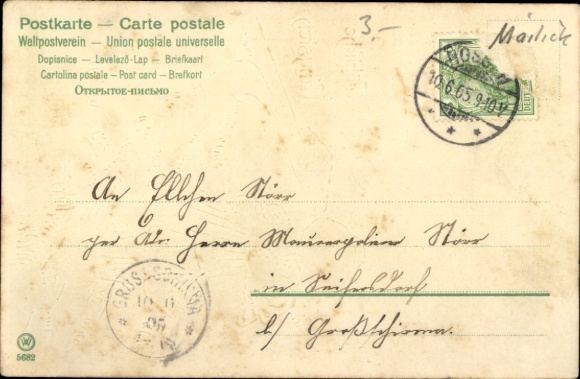 Postkarte — Carte postale
Weltpostverein — Union postale universelle
Dopisnice — Levelező-Lap — Briefkaart
Cartolina postale — Post card — Brefkort
Открытое-письмо
3.-
10.6.05.9-10V
DEUT
An Ellchen Störr
per Adr. Herrn Maurerpolier Störr
in Seifersdorf
b/ Großschirma.
GROSSSCHIRMA
10 6
05
W
5682